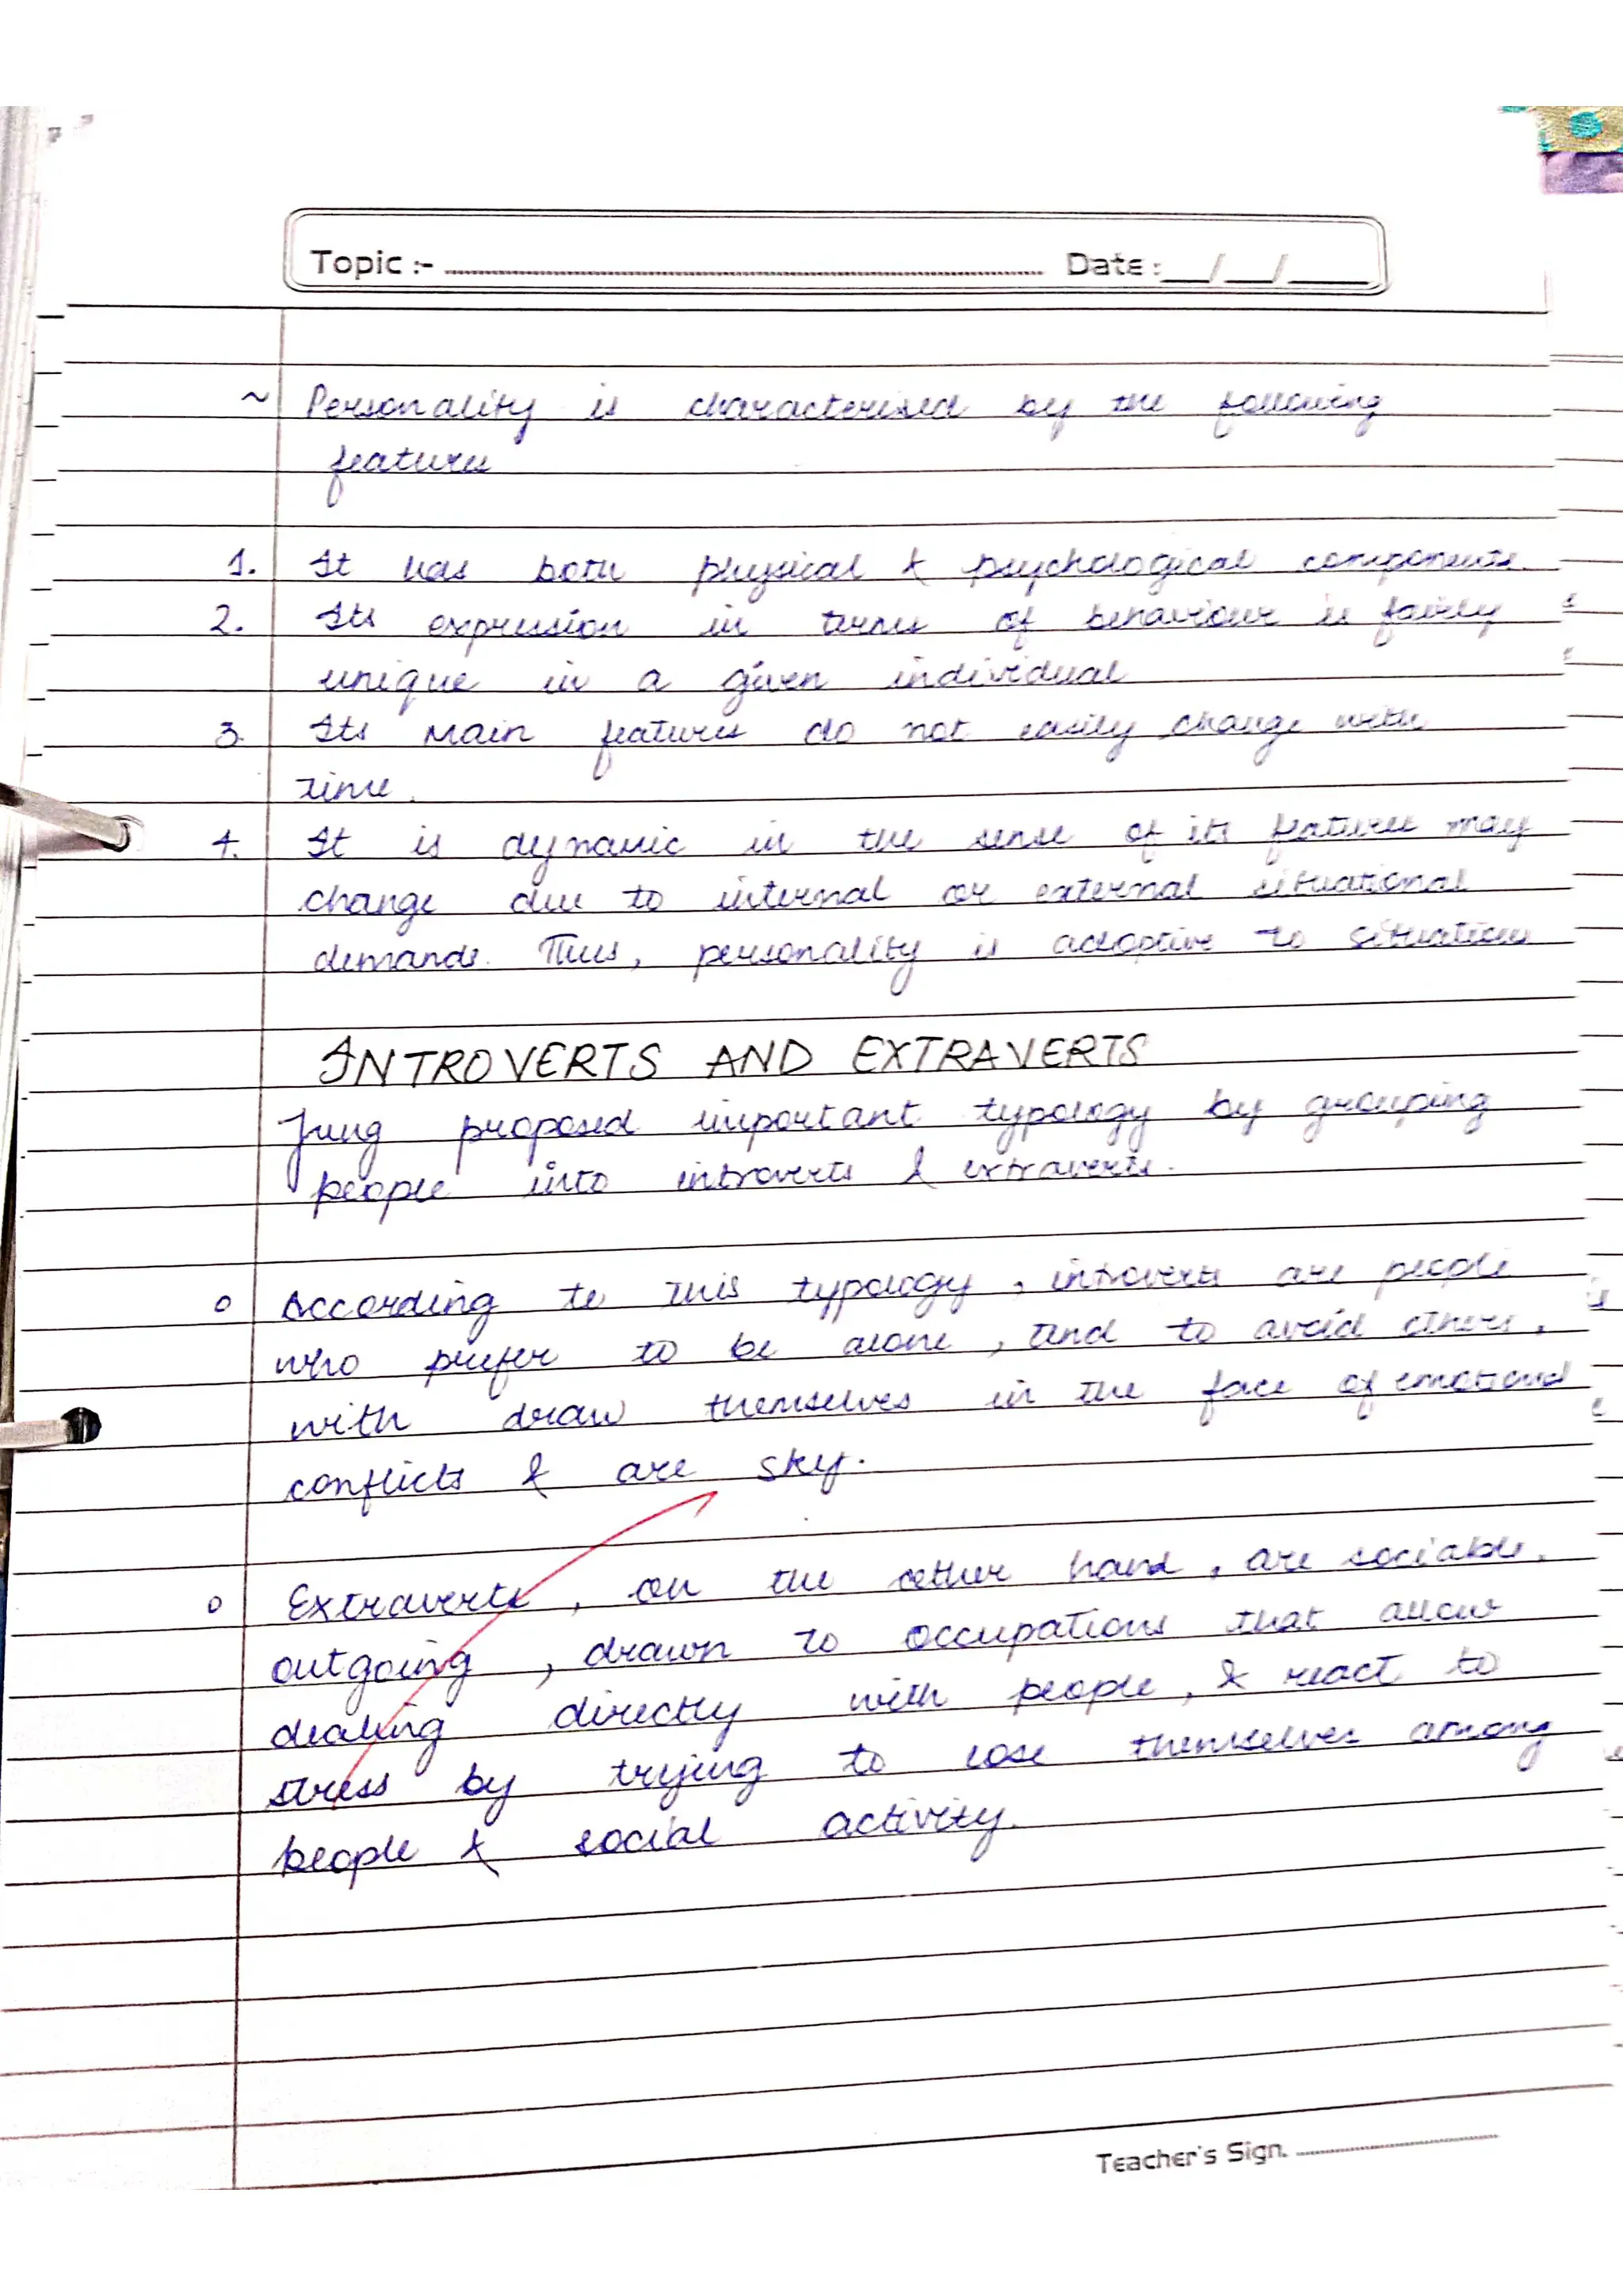 Topic :- Date : __/__/____
~ Personality is characterised by the following
features
1. It has both physical & psychological components.
2. Its expression in terms of behaviour is fairly
unique in a given individual
3. Its main features do not easily change with
time.
4. It is dynamic in the sense of its features may
change due to internal or external situational
demands. Thus, personality is adoptive to situations
INTROVERTS AND EXTRAVERTS
Jung proposed important typology by grouping
people into introverts & extraverts.
o According to this typology, introverts are people
who prefer to be alone, tend to avoid others,
with draw themselves in the face of emotional
conflicts & are shy.
o Extraverts, on the other hand, are sociable,
outgoing, drawn to occupations that allow
dealing directly with people, & react to
stress by trying to lose themselves among
people & social activity.
Teacher's Sign.